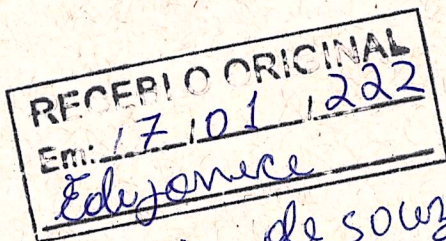 RECEBI O ORIGINAL
Em: 17 / 01 / 222
Edejonece
de souz